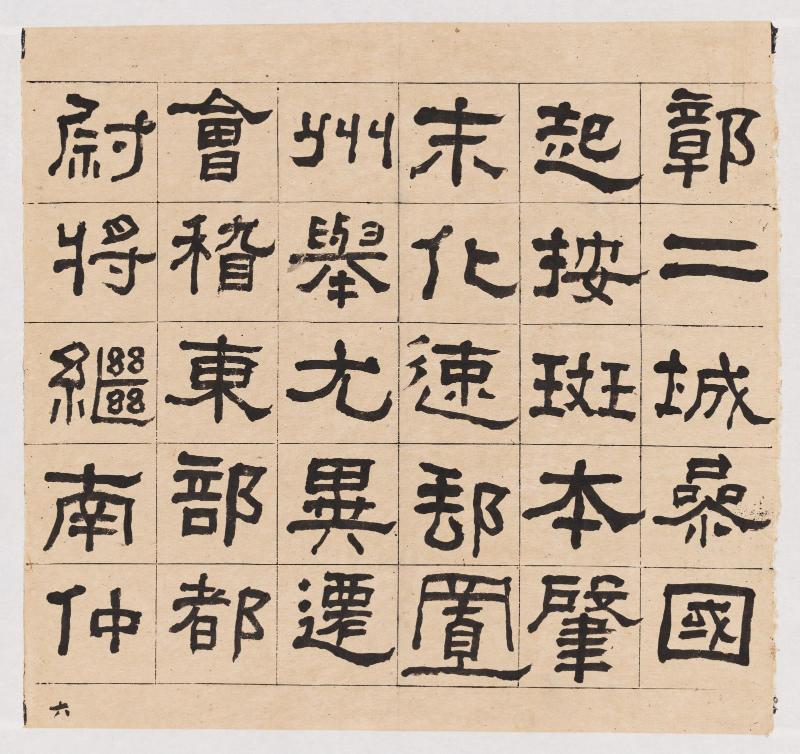 鄣二城參國
起按斑本肇
末化速郵置
州舉尤異遷
會稽東部都
尉將繼南仲
六